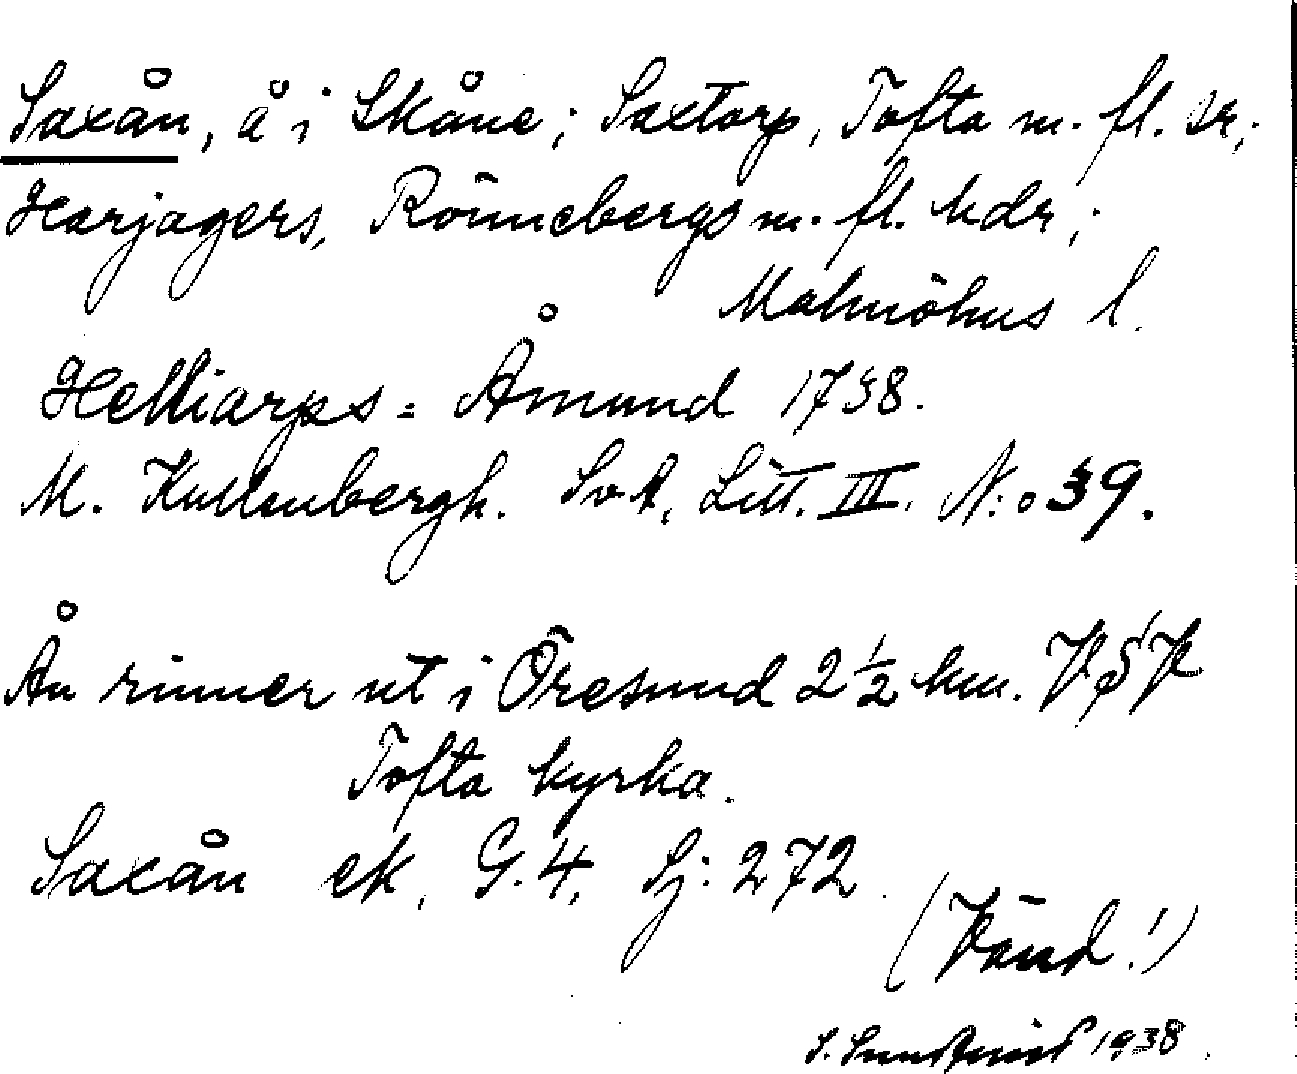 Saxån, å i Skåne; Saxtorp, Tofta m. fl. sr,;
Harjagers, Rönnebergs m. fl. hdr,;
Malmöhus l.
Helliarps = Åmund 1758.
M. Kullenbergh. SvA, Litt. III. N:o 39.
Ån rinner ut i Öresund 2 1/2 km. VSV
Tofta kyrka.
Saxån ek. G. 4, Sj: 272.
(Vänd!)
S. 1938.